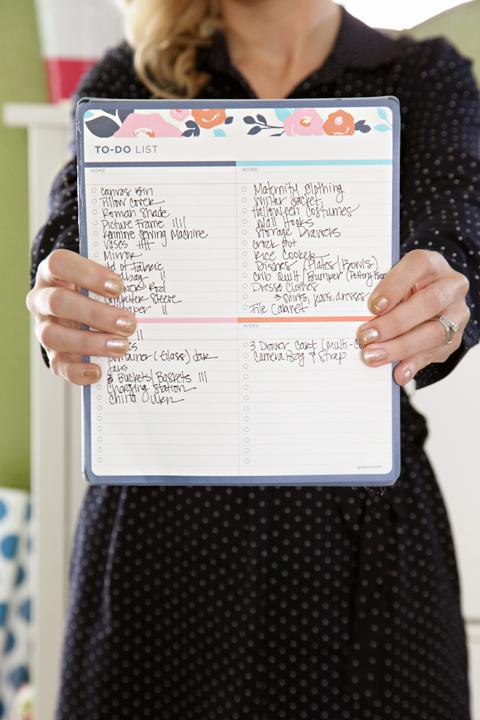 TO-DO LIST
HOME
Canvas Bin
Pillow
Roman Shade
Picture Frame IIII
Sewing Machine
Vases
Mirror
of Fabric
bag II
Sleeve
II
II
Container (Glass) Jar
Jars
3 Buckets/Baskets III
Charging Station
China
WORK
Maternity Clothing
Winter Jacket
Halloween Costumes
Wall Hooks
Storage Drawers
Crock Pot
Rice Cooker
Dishes (Plates/Bowls)
Crib Quilt/Bumper (Pottery Barn
Dress Clothes
3 shirts, pants, dresses
File Cabinet
WORK
3 Drawer Cart (Multi-Co
Camera Bag & Strap